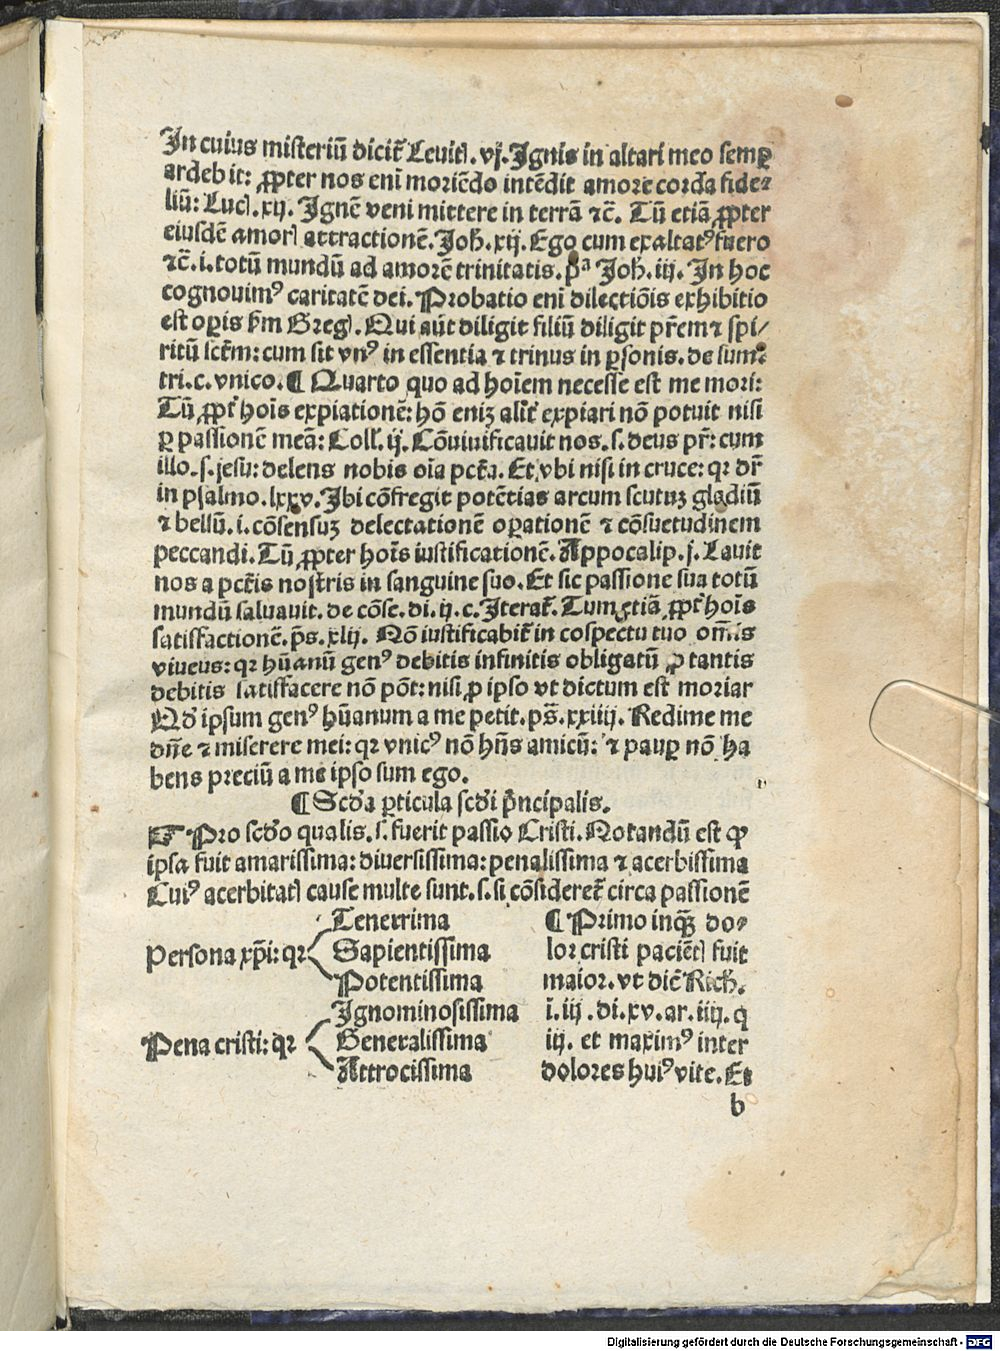 In cuius misteriū diciť Leuiť. vj. Ignis in altari meo semꝑ
ardebit: ꝓpter nos enī moriēdo intēdit amore corda fide-
liū: Luc. xij. Ignē veni mittere in terrā ⁊c̄. Tū etiā ꝓpter
eiusdē amorꝭ attractionē. Joh̄. xij. Ego cum exaltatꝰ fuero
⁊c̄. i. totū mundū ad amorē trinitatis. pᵃ Joh̄. iij. In hoc
cognouimꝰ caritatē dei. Probatio enī dilectiōis exhibitio
est oꝑis ẜm Gregꝭ. Qui aūt diligit filiū diligit pr̄em ⁊ spi/
ritū sct̄m: cum sit vnꝰ in essentia ⁊ trinus in ꝑsonis. de sum̄
tri. c. vnico. ¶ Quarto quo ad hoīem necesse est me mori:
Tū ꝓpť hoīs expiationē: hō enīꝫ aliť expiari nō potuit nisi
ꝑ passionē meā: Coll̄. ij. Cōuiuificauit nos. s. deus pr̄: cum
illo. s. jesu: delens nobis oīa pctā. Et vbi nisi in cruce: qꝛ dr̄
in psalmo. lxxv. Ibi cōfregit potētias arcum scutuꝫ gladiū
⁊ bellū. i. cōsensuꝫ delectationē oꝑationē ⁊ cōsuetudinem
peccandi. Tū ꝓpter hoīs iustificationē. Appocalip. j. Lauit
nos a pctīs nostris in sanguine suo. Et sic passione sua totū
mundū saluauit. de cōse. di. ij. c. Iterať. Tum etiā ꝓpť hoīs
satisfactionē. ps̄. xlij. Nō iustificabiť in cospectu tuo omīs
viueus: qꝛ hūanū genꝰ debitis infinitis obligatū ꝓ tantis
debitis satisfacere nō pōt: nisi ꝓ ipso vt dictum est moriar
Qď ipsum genꝰ hūanum a me petit. ps̄. xxiiij. Redime me
dn̄e ⁊ miserere mei: qꝛ vnicꝰ nō hn̄s amicū: ⁊ pauꝑ nō ha
bens preciū a me ipso sum ego.
¶ Scďa ꝑticula scďi pͥncipalis.
Pro scďo qualis. s. fuerit passio Cristi. Notandū est ꝙ
ipsa fuit amarissima: diuersissima: penalissima ⁊ acerbissima
Cuiꝰ acerbitatꝭ cause multe sunt. s. si cōsidereť circa passionē
Persona xp̄i: qꝛ
Tenerrima
Sapientissima
Potentissima
Pena cristi: qꝛ
Ignominosissima
Generalissima
Attrocissima
¶ Primo inqͣꝫ do-
lor cristi paciētꝭ fuit
maior. vt dic̄ Rich̄.
i. iij. di. xv. ar. iiij. q
iij. et maximꝰ inter
dolores huiꝰ vite. Et
b
Digitalisierung gefördert durch die Deutsche Forschungsgemeinschaft - DFG